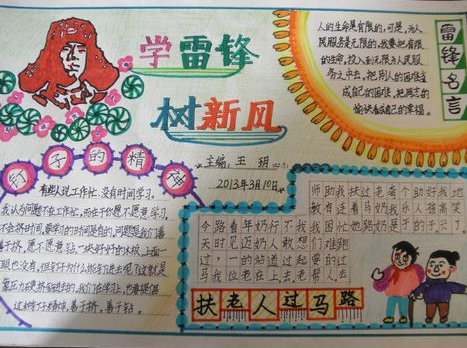 学雷锋
树新风
主编:王
2013年3月10日
雷锋名言
人的生命是有限的,可是,为人
民服务是无限的,我要把有限
的生命,投入到无限为人民服
务之中去。把别人的困难当
成自己的困难,把同志的
愉快看成自己的幸福。
钉子的精神
有些人说工作忙、没有时间学习。
我认为问题不在工作忙,而在于你愿不愿意学习,
会不会挤时间,要学习的时间是有的,问题是我们善
善于挤,愿不愿意钻。一块好好的木板,上面一
眼也没有,但钉子为什么能钉进去呢?这就是
靠压力硬挤硬钻进去的,我们在学习上,也要提倡
这种钉子精神,善于挤,善于钻。
今天过马
路时,我
看见一位
年迈的老
奶奶站在
行人道上
不敢过去
我想起老
师教我们要帮
助有困难的人
我 忙跑过去
扶着地
过马路
老奶奶
看我是
个乐于
助人的
好 子
我高兴
地笑了
扶老人过马路